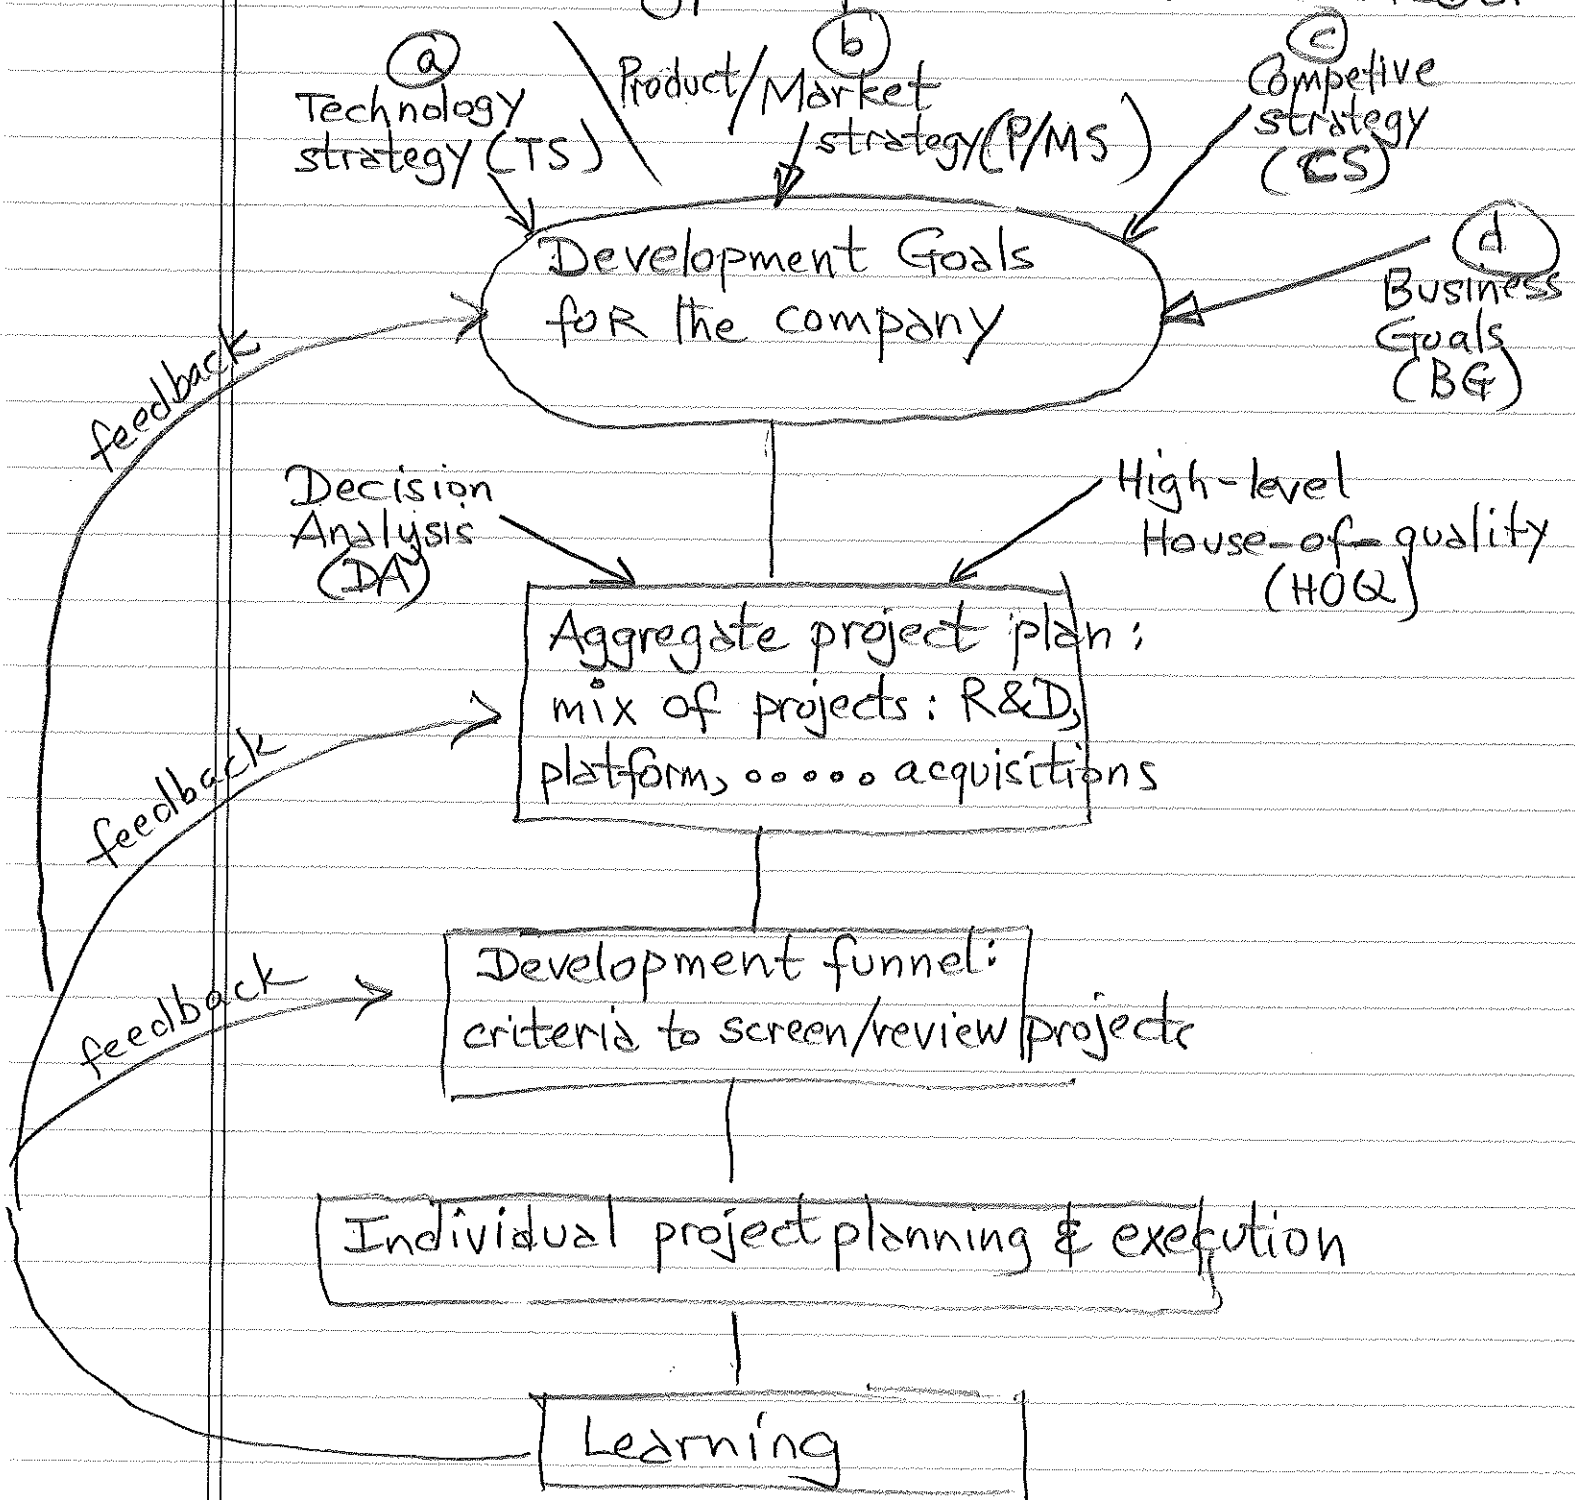 a
Technology
strategy (TS)
b
Product/Market
strategy (P/MS)
c
Competive
strategy
(CS)
d
Business
Goals
(BG)
Development Goals
foR the company
feedback
Decision
Analysis
(DA)
High-level
House-of-quality
(HOQ)
Aggregate project plan:
mix of projects: R&D,
platform, ..... acquisitions
feedback
Development funnel:
criteria to screen/review projects
feedback
Individual project planning & execution
Learning